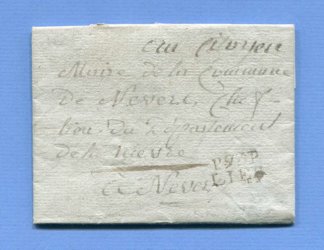 au Citoyen
Maire de la Commune
De Nevers, Chef
lieu du Département
de la nievre
à Nevers
P92P
LIEGE